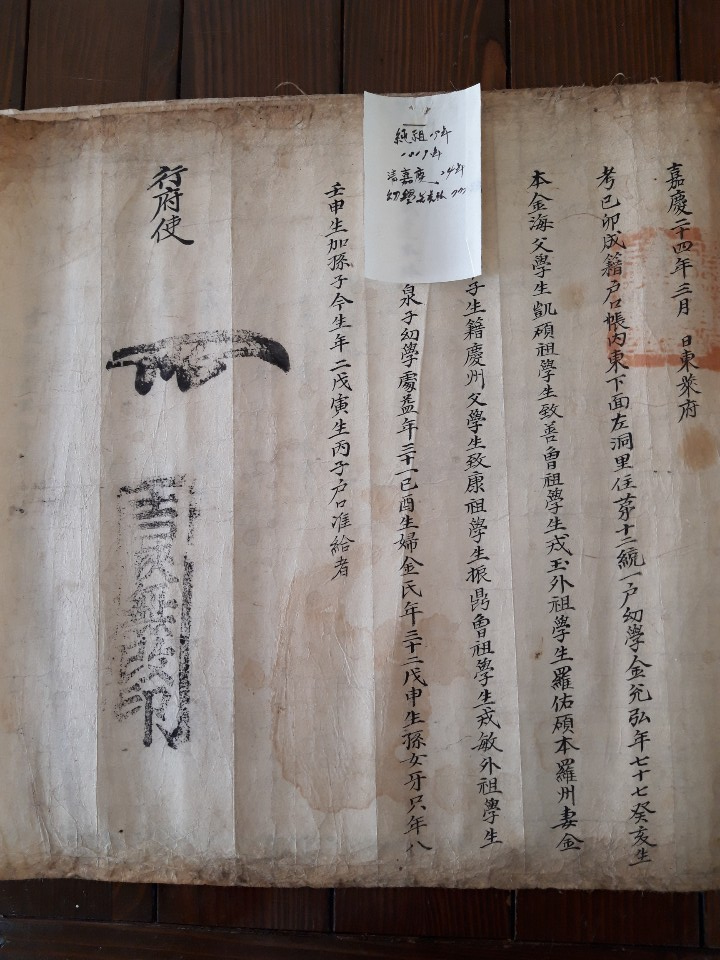 嘉慶二十四年三月 日東萊府
考己卯成籍戶口帳內東下面左洞里住苐十二統一戶幼學金兊弘年七十七癸亥生
本金海父學生凱碩祖學生致善曾祖學生戎玉外祖學生羅佑碩本羅州妻金
學生籍慶州父學生致康祖學生振鼎曾祖學生戎敏外祖學生
泉子幼學處益年三十一己酉生婦金氏年三十二戊申生孫女牙只年八
壬申生加孫子今生年二戊寅生丙子戶口准給者
行府使
純祖19年
1819年
清嘉慶 24年
幼學